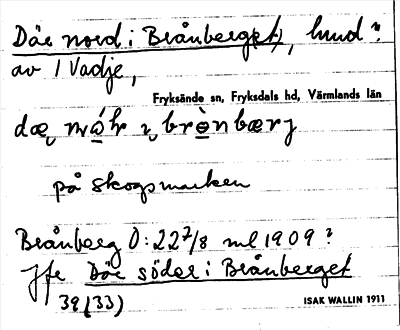 Där nord i Brånberg(et), hund?
av 1 Vadje,
Fryksände sn, Fryksdals hd, Värmlands län
på skogsmarken
Brånberg Ö: 22 7/8 ml 1909?
Jfr Där söder i Brånberget
39 (33)
ISAK WALLIN 1911